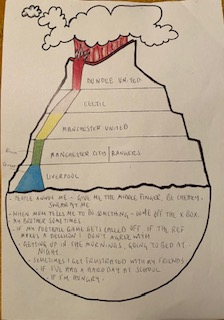 DUNDEE UNITED
CELTIC
MANCHESTER UNITED
MANCHESTER CITY | RANGERS
LIVERPOOL
- PEOPLE ANNOY ME - GIVE ME THE MIDDLE FINGER, BE CHEEKY,
SWEAR AT ME
- WHEN MUM TELLS ME TO DO SOMETHING - COME OFF THE X BOX.
MY BROTHER SOMETIMES.
- IF MY FOOTBALL GAME GETS CALLED OFF. IF THE REF
MAKES A DECISION I DON'T AGREE WITH
- GETTING UP IN THE MORNINGS, GOING TO BED AT
NIGHT.
- SOMETIMES I GET FRUSTRATED WITH MY FRIENDS.
- IF I'VE HAD A HARD DAY AT SCHOOL.
- IF I'M HUNGRY.